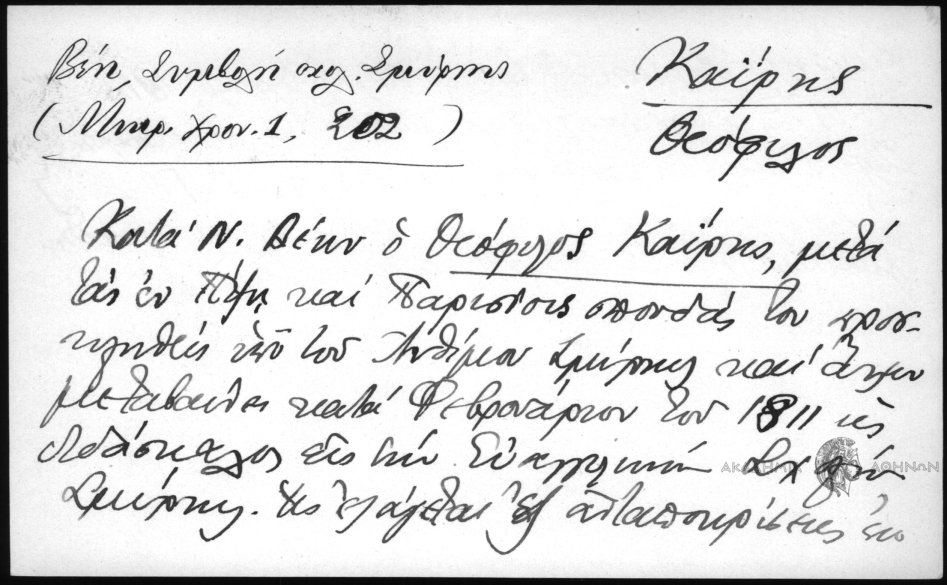 Βέη Συμβολή σχολ. Σμύρνης
(Μικρ. Χρον. 1, 202)
Καΐρης
Θεόφιλος
Κατά Ν. Βέην ὁ Θεόφιλος Καΐρης, μετά
τάς ἐν Πίζῃ καί Παρισίοις σπουδάς του προσ-
κληθείς ὑπό τοῦ Ἀνθίμου Σμύρνης καί ἄλλων
μεταβαίνει κατά Φεβρουάριον τοῦ 1811 ὡς
διδάσκαλος εἰς τήν Εὐαγγελικήν Σχολήν
Σμύρνης. Ὡς ἐξάγεται ἐξ ἀνταποκρίσεως ἐκ
ΑΚΑΔΗΜΙΑ ΑΘΗΝΩΝ